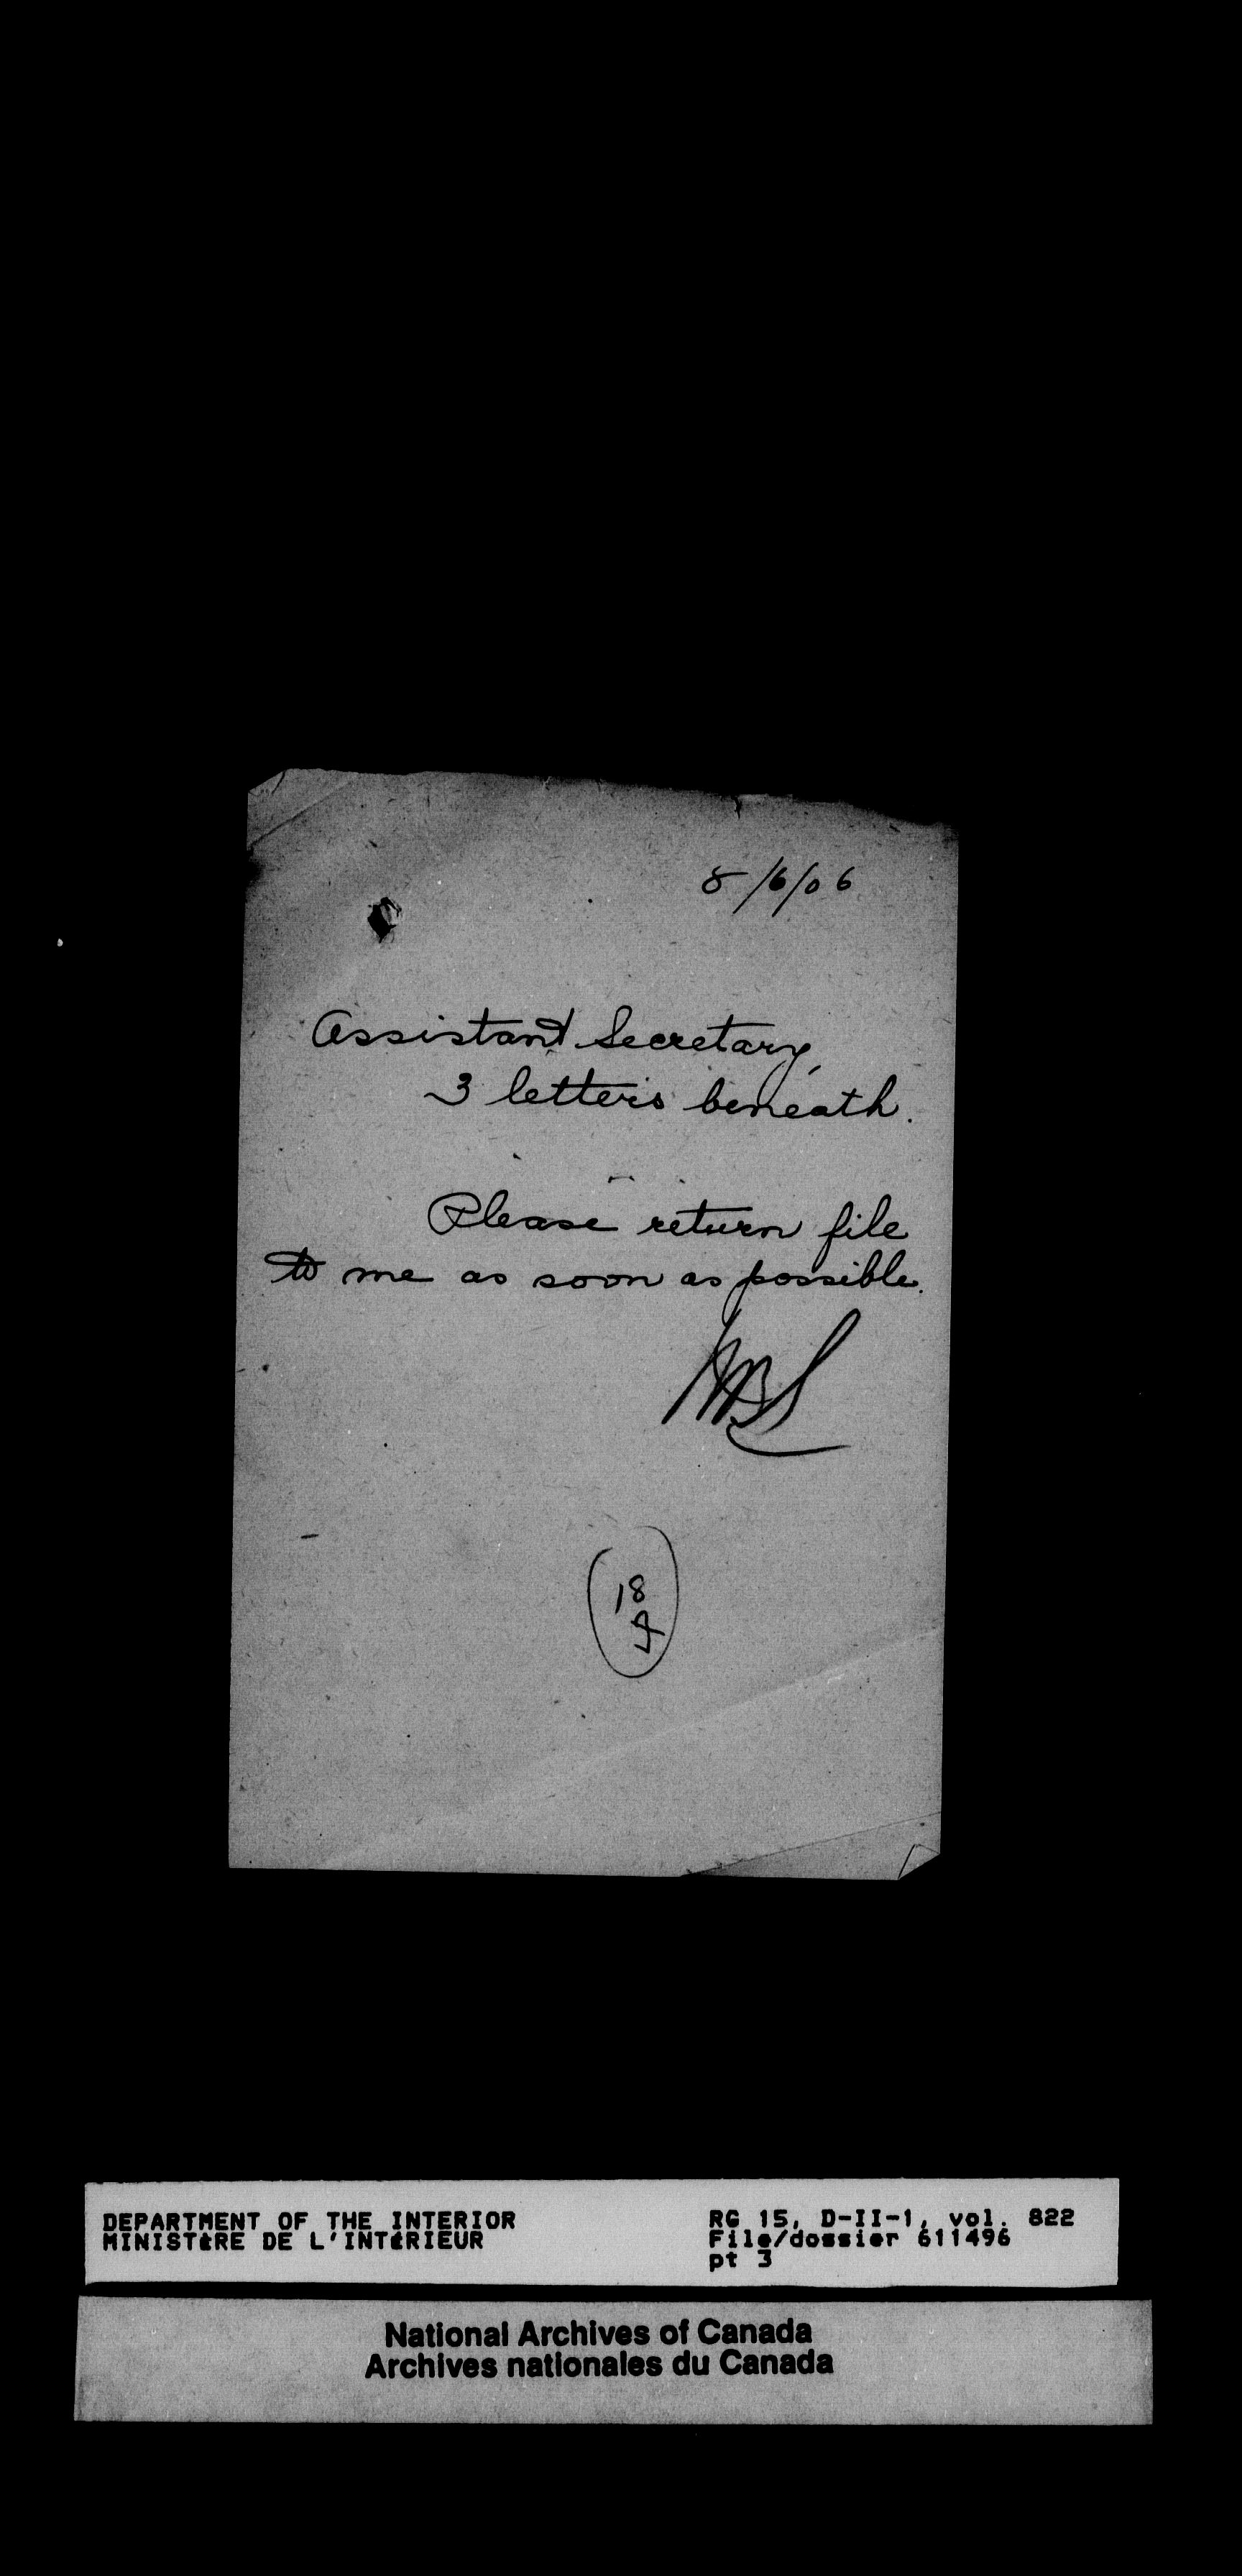 8/6/06
Assistant Secretary,
3 letters beneath.
Please return file
to me as soon as possible.
18
DEPARTMENT OF THE INTERIOR
MINISTÈRE DE L'INTÉRIEUR
RG 15, D-II-1, vol. 822
File/dossier 611496
pt 3
National Archives of Canada
Archives nationales du Canada